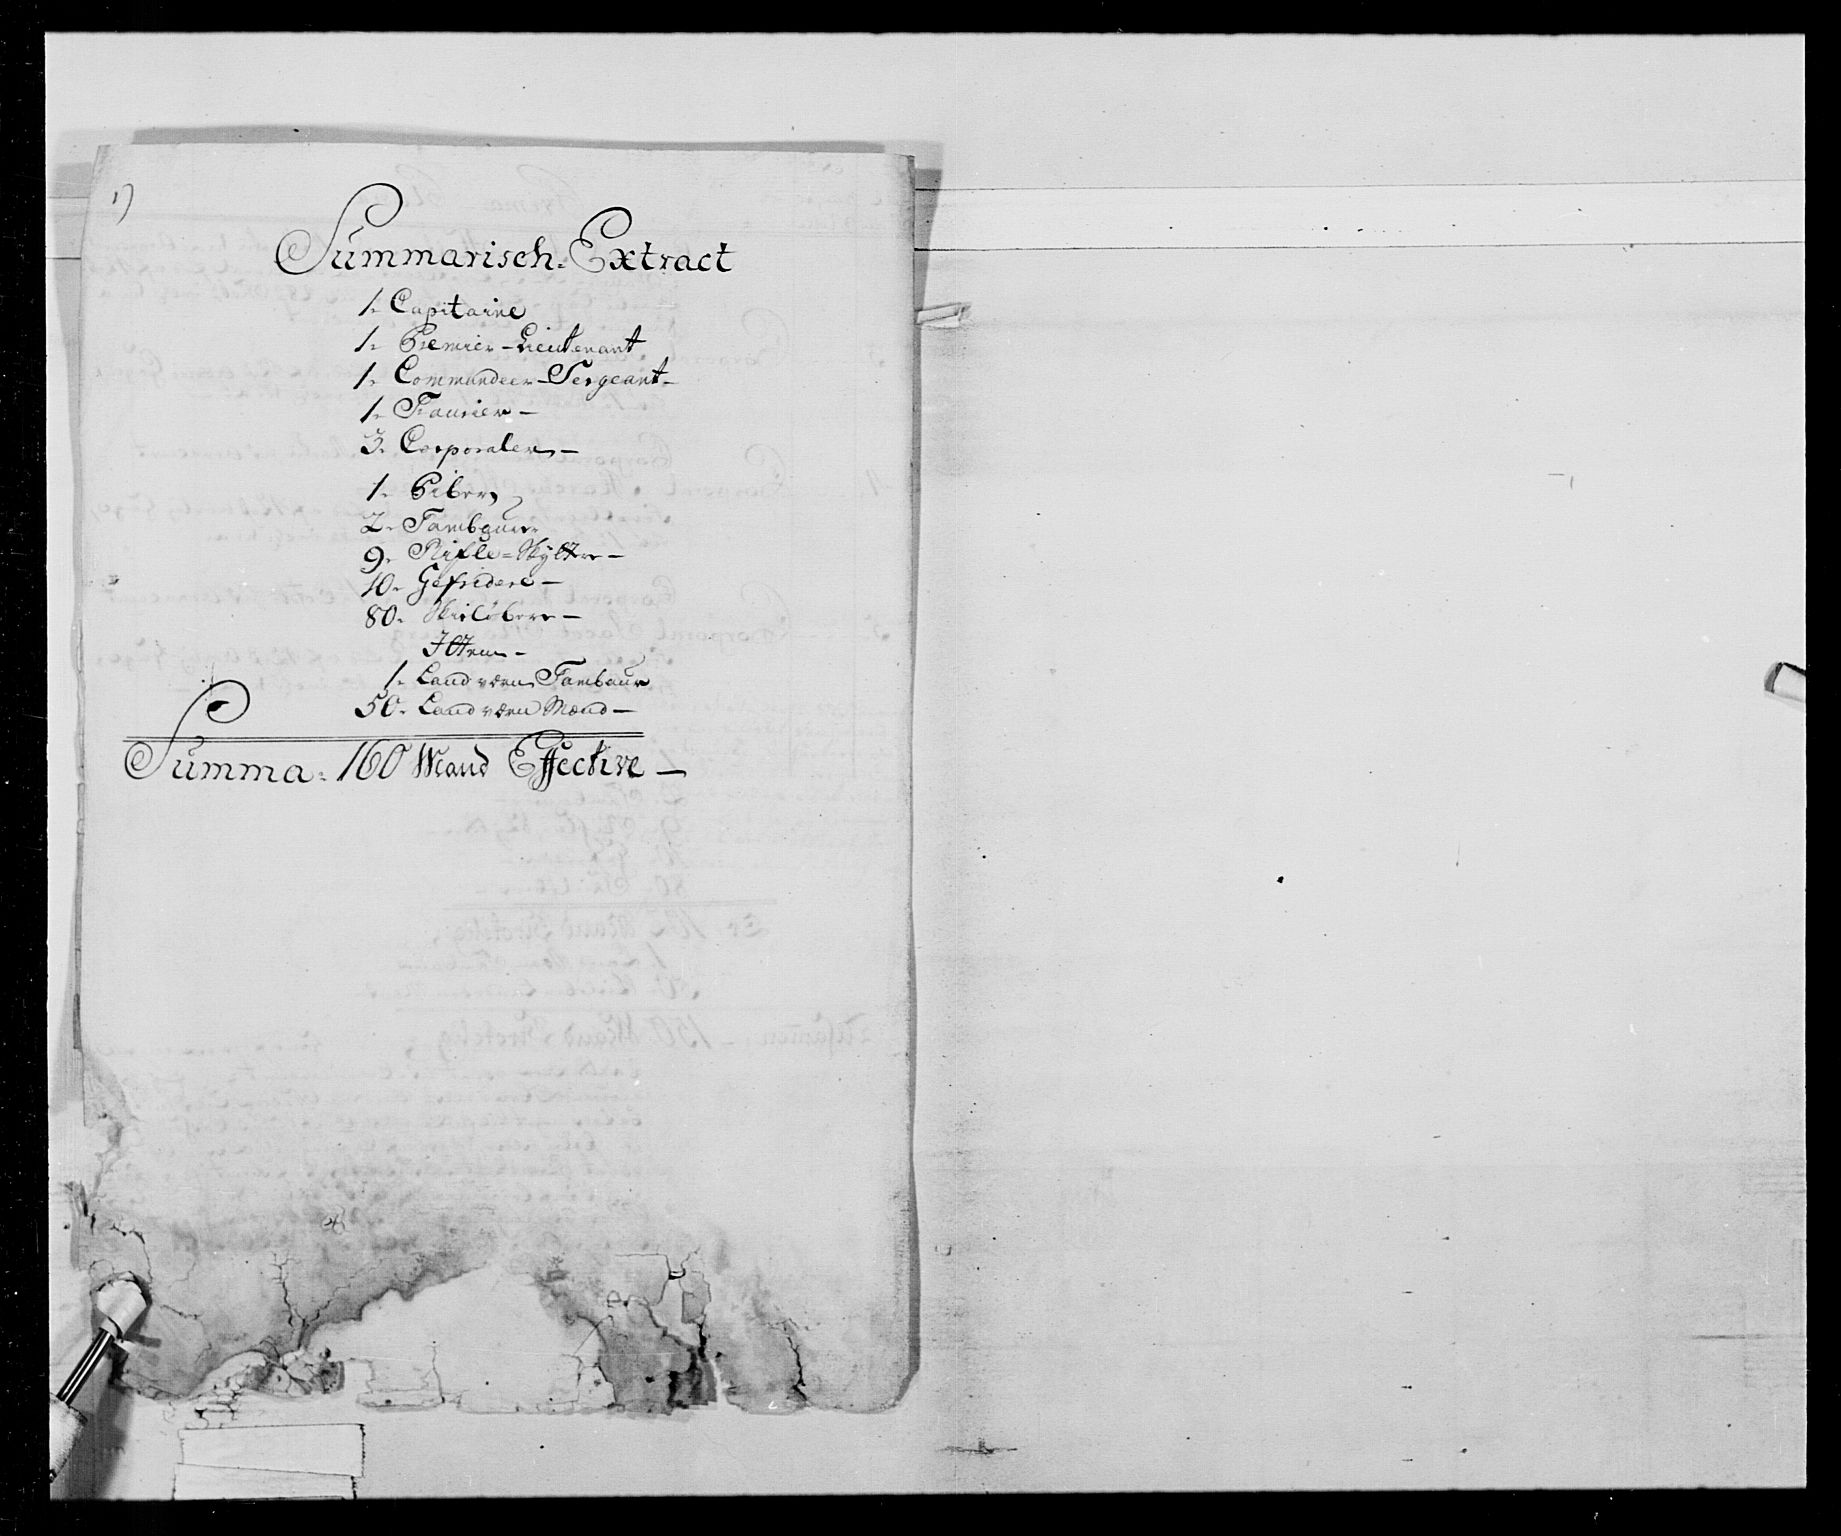 1)
Summarisch-Extract
1. Capitaine
1. Premier-Lieutenant
1. Commandeer-Sergeant-
1. Fourier-
3. Corporaler-
1. Piber,
2. Tambourer
9. Rifle-Skÿtter-
10. Gefridere-
80. Skielöbere-
Ittem-
1. Landværn Tambour
50. Landværn Mænd-
Summa. 160 Mand Effective-